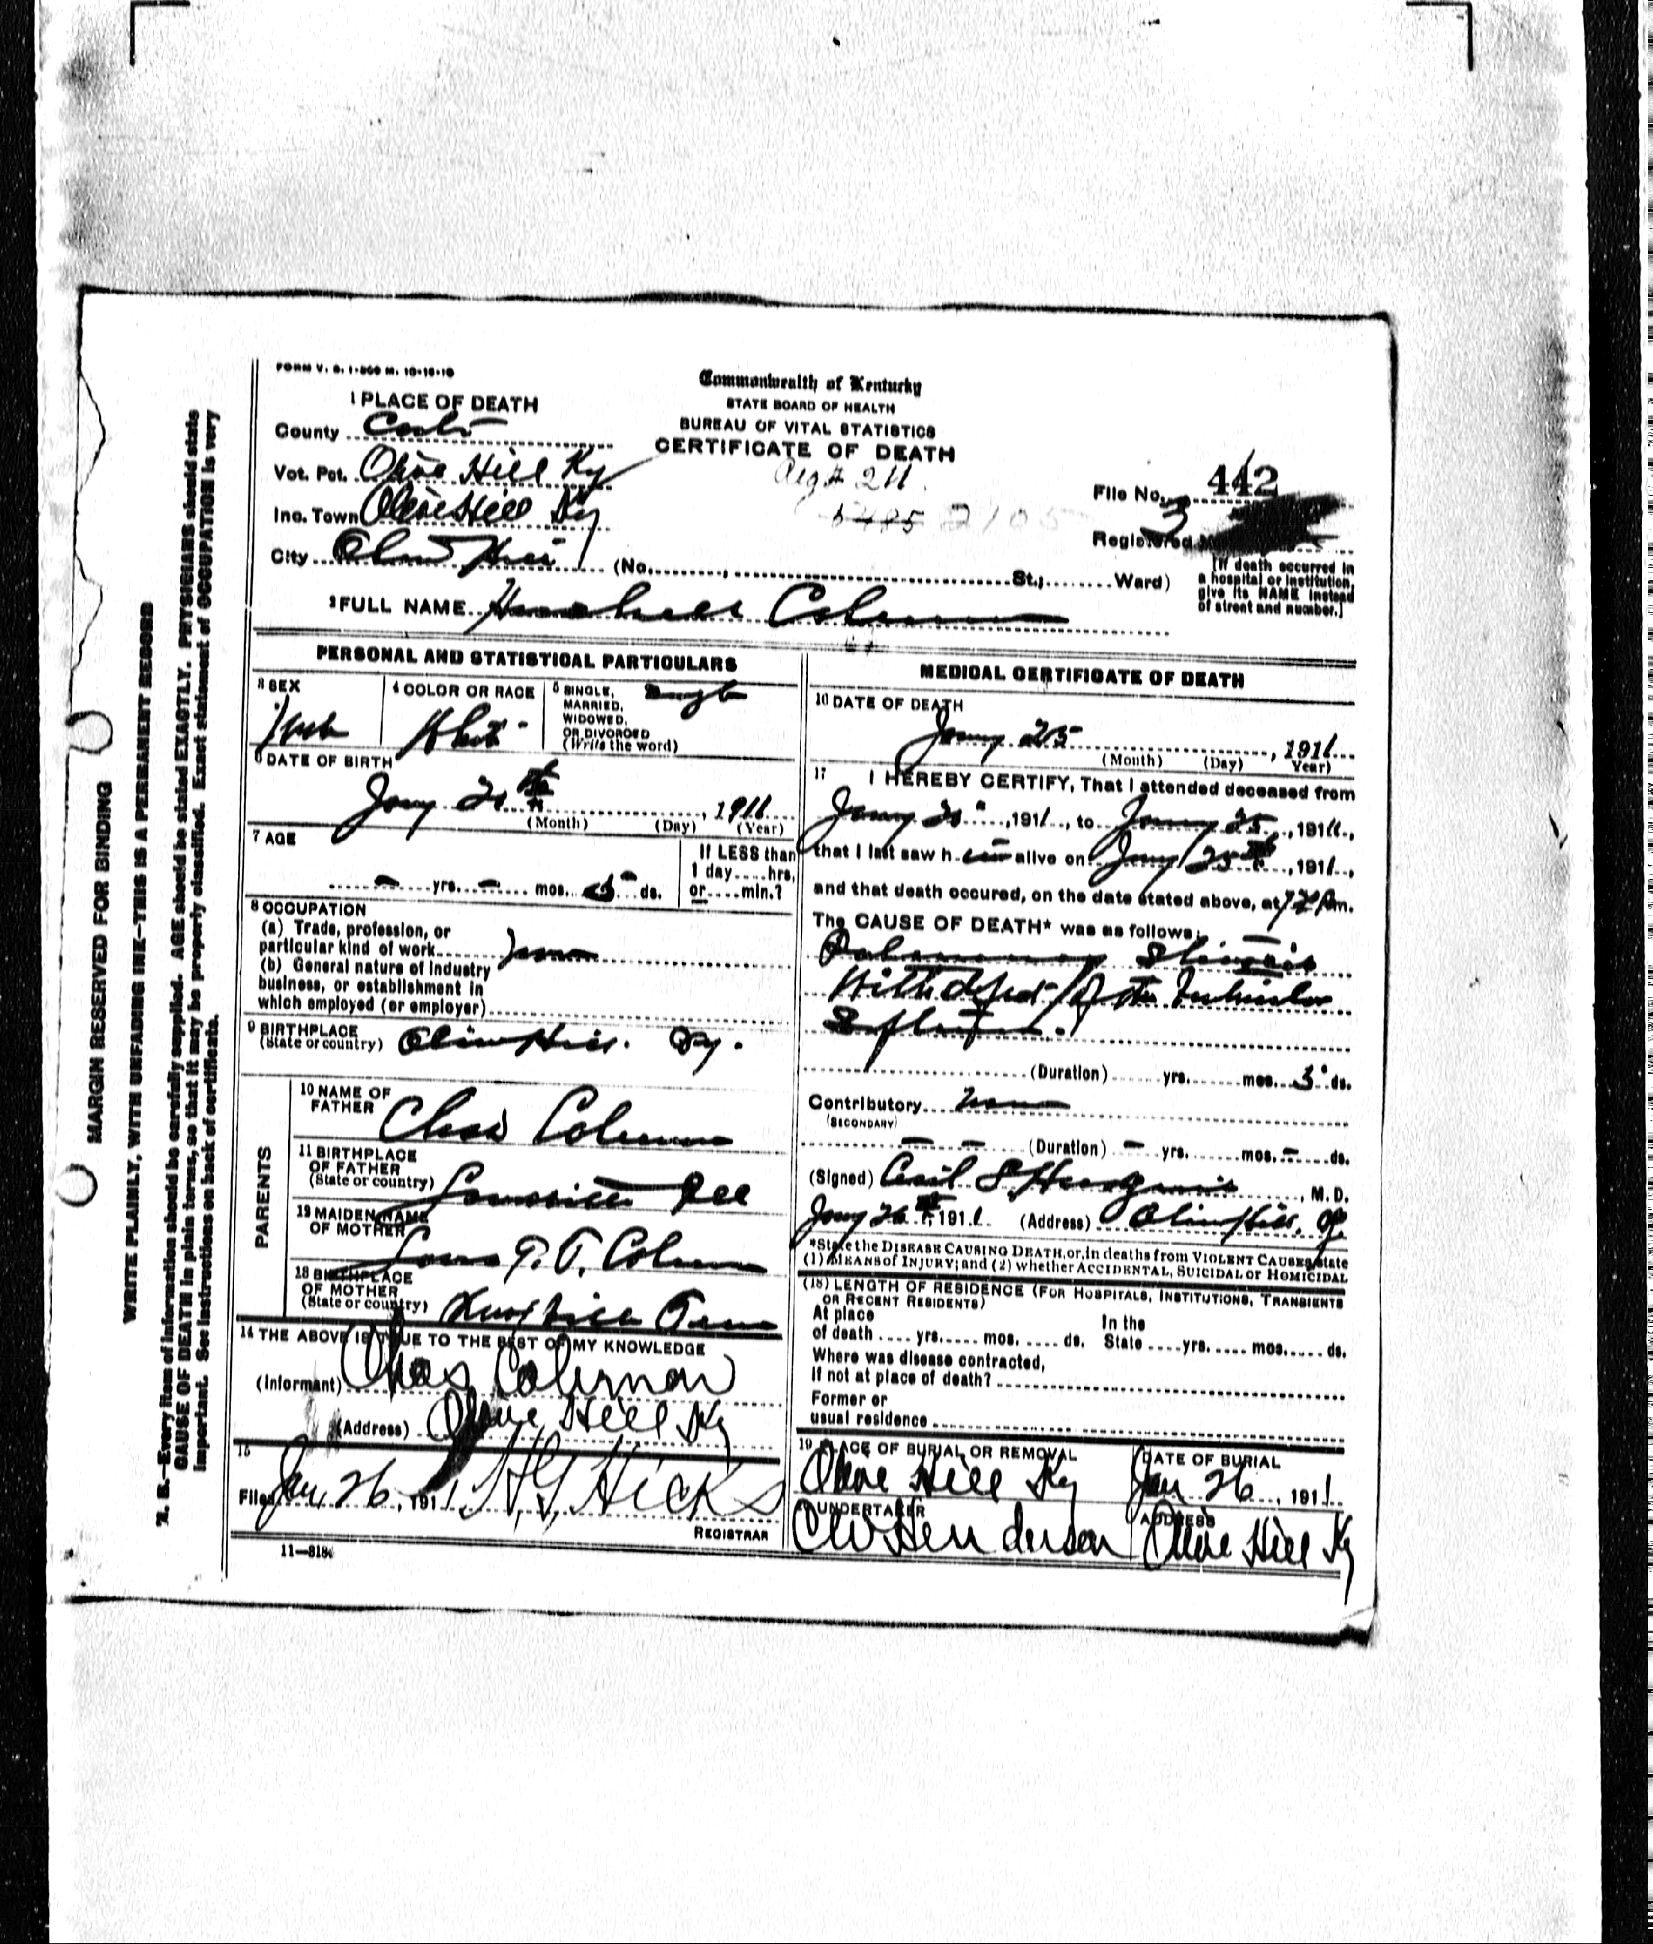 FORM V. S. 1-500 M. 10-18-10
Commonwealth of Kentucky
STATE BOARD OF HEALTH
BUREAU OF VITAL STATISTICS
CERTIFICATE OF DEATH
1 PLACE OF DEATH
County
Vot. Pct. Olive Hill Ky
Inc. Town Olive Hill Ky
City Olive Hill (No. , St.; Ward)
File No. 442
Registered No. 3
[If death occurred in
a hospital or institution,
give its NAME instead
of street and number.]
2 FULL NAME Coleman
PERSONAL AND STATISTICAL PARTICULARS
3 SEX
4 COLOR OR RACE White
5 SINGLE, MARRIED, WIDOWED, OR DIVORCED (Write the word) Single
6 DATE OF BIRTH
Jany 20th, 1911
(Month) (Day) (Year)
7 AGE
- yrs. - mos. 5 ds.
If LESS than
1 day....hrs,
or....min.?
8 OCCUPATION
(a) Trade, profession, or
particular kind of work
(b) General nature of industry
business, or establishment in
which employed (or employer)
9 BIRTHPLACE
(State or country) Olive Hill. Ky.
PARENTS
10 NAME OF
FATHER Chas Coleman
11 BIRTHPLACE
OF FATHER
(State or country)
12 MAIDEN NAME
OF MOTHER Coleman
13 BIRTHPLACE
OF MOTHER
(State or country)
14 THE ABOVE IS TRUE TO THE BEST OF MY KNOWLEDGE
(Informant) Chas Coleman
(Address) Olive Hill Ky
15
Filed Jan 26, 1911 H G Hicks
REGISTRAR
11-818
MEDICAL CERTIFICATE OF DEATH
16 DATE OF DEATH
Jany 25, 1911
(Month) (Day) Year)
17 I HEREBY CERTIFY, That I attended deceased from
Jany 20", 1911, to Jany 25, 1911,
that I last saw h im alive on Jany 25th, 1911,
and that death occured, on the date stated above, at 7 Pm.
The CAUSE OF DEATH* was as follows:
(Duration) yrs. mos. 5 ds.
Contributory None
(SECONDARY)
- - (Duration) - yrs. mos. - ds.
(Signed) Cecil , M.D.
Jany 26th, 1911 (Address) Olive Hill, Ky.
*State the DISEASE CAUSING DEATH, or, in deaths from VIOLENT CAUSES, state
(1) MEANS of INJURY; and (2) whether ACCIDENTAL, SUICIDAL or HOMICIDAL
(18) LENGTH OF RESIDENCE (FOR HOSPITALS, INSTITUTIONS, TRANSIENTS
OR RECENT RESIDENTS)
At place In the
of death .... yrs..... mos. .... ds. State ....yrs..... mos..... ds.
Where was disease contracted,
If not at place of death?
Former or
usual residence
19 PLACE OF BURIAL OR REMOVAL
Olive Hill Ky
DATE OF BURIAL
Jan 26, 1911
UNDERTAKER
CW Henderson
ADDRESS
Olive Hill Ky
MARGIN RESERVED FOR BINDING
WRITE PLAINLY, WITH UNFADING INK-THIS IS A PERMANENT RECORD
N. B.-Every item of information should be carefully supplied. AGE should be stated EXACTLY. PHYSICIANS should state
CAUSE OF DEATH in plain terms, so that it may be properly classified. Exact statement of OCCUPATION is very
important. See instructions on back of certificate.